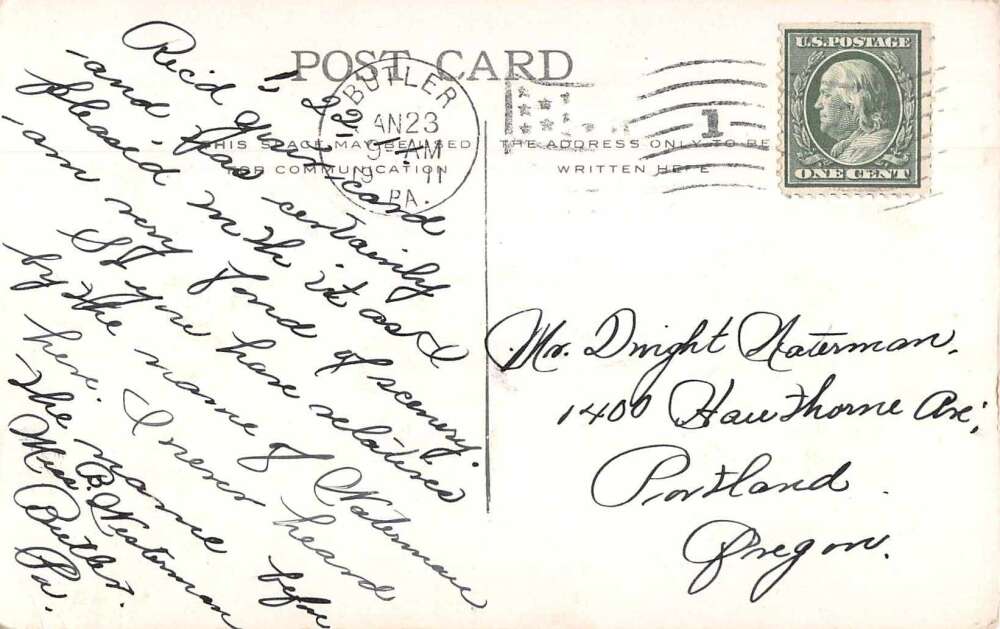 POST CARD
THIS SPACE MAY BE USED
FOR COMMUNICATION
THE ADDRESS ONLY TO BE
WRITTEN HERE
BUTLER
JAN 23
9-AM
1911
PA.
1
U.S. POSTAGE
ONE CENT
Rec'd your card
and was certainly
pleased with it as I
am very fond of scenery.
Have relatives
by the name of Waterman
here. I never heard
the name before
Miss B. Westerman
Butler.
Pa.
Mr. Dwight Waterman.
1400 Hawthorne Ave;
Portland
Oregon.